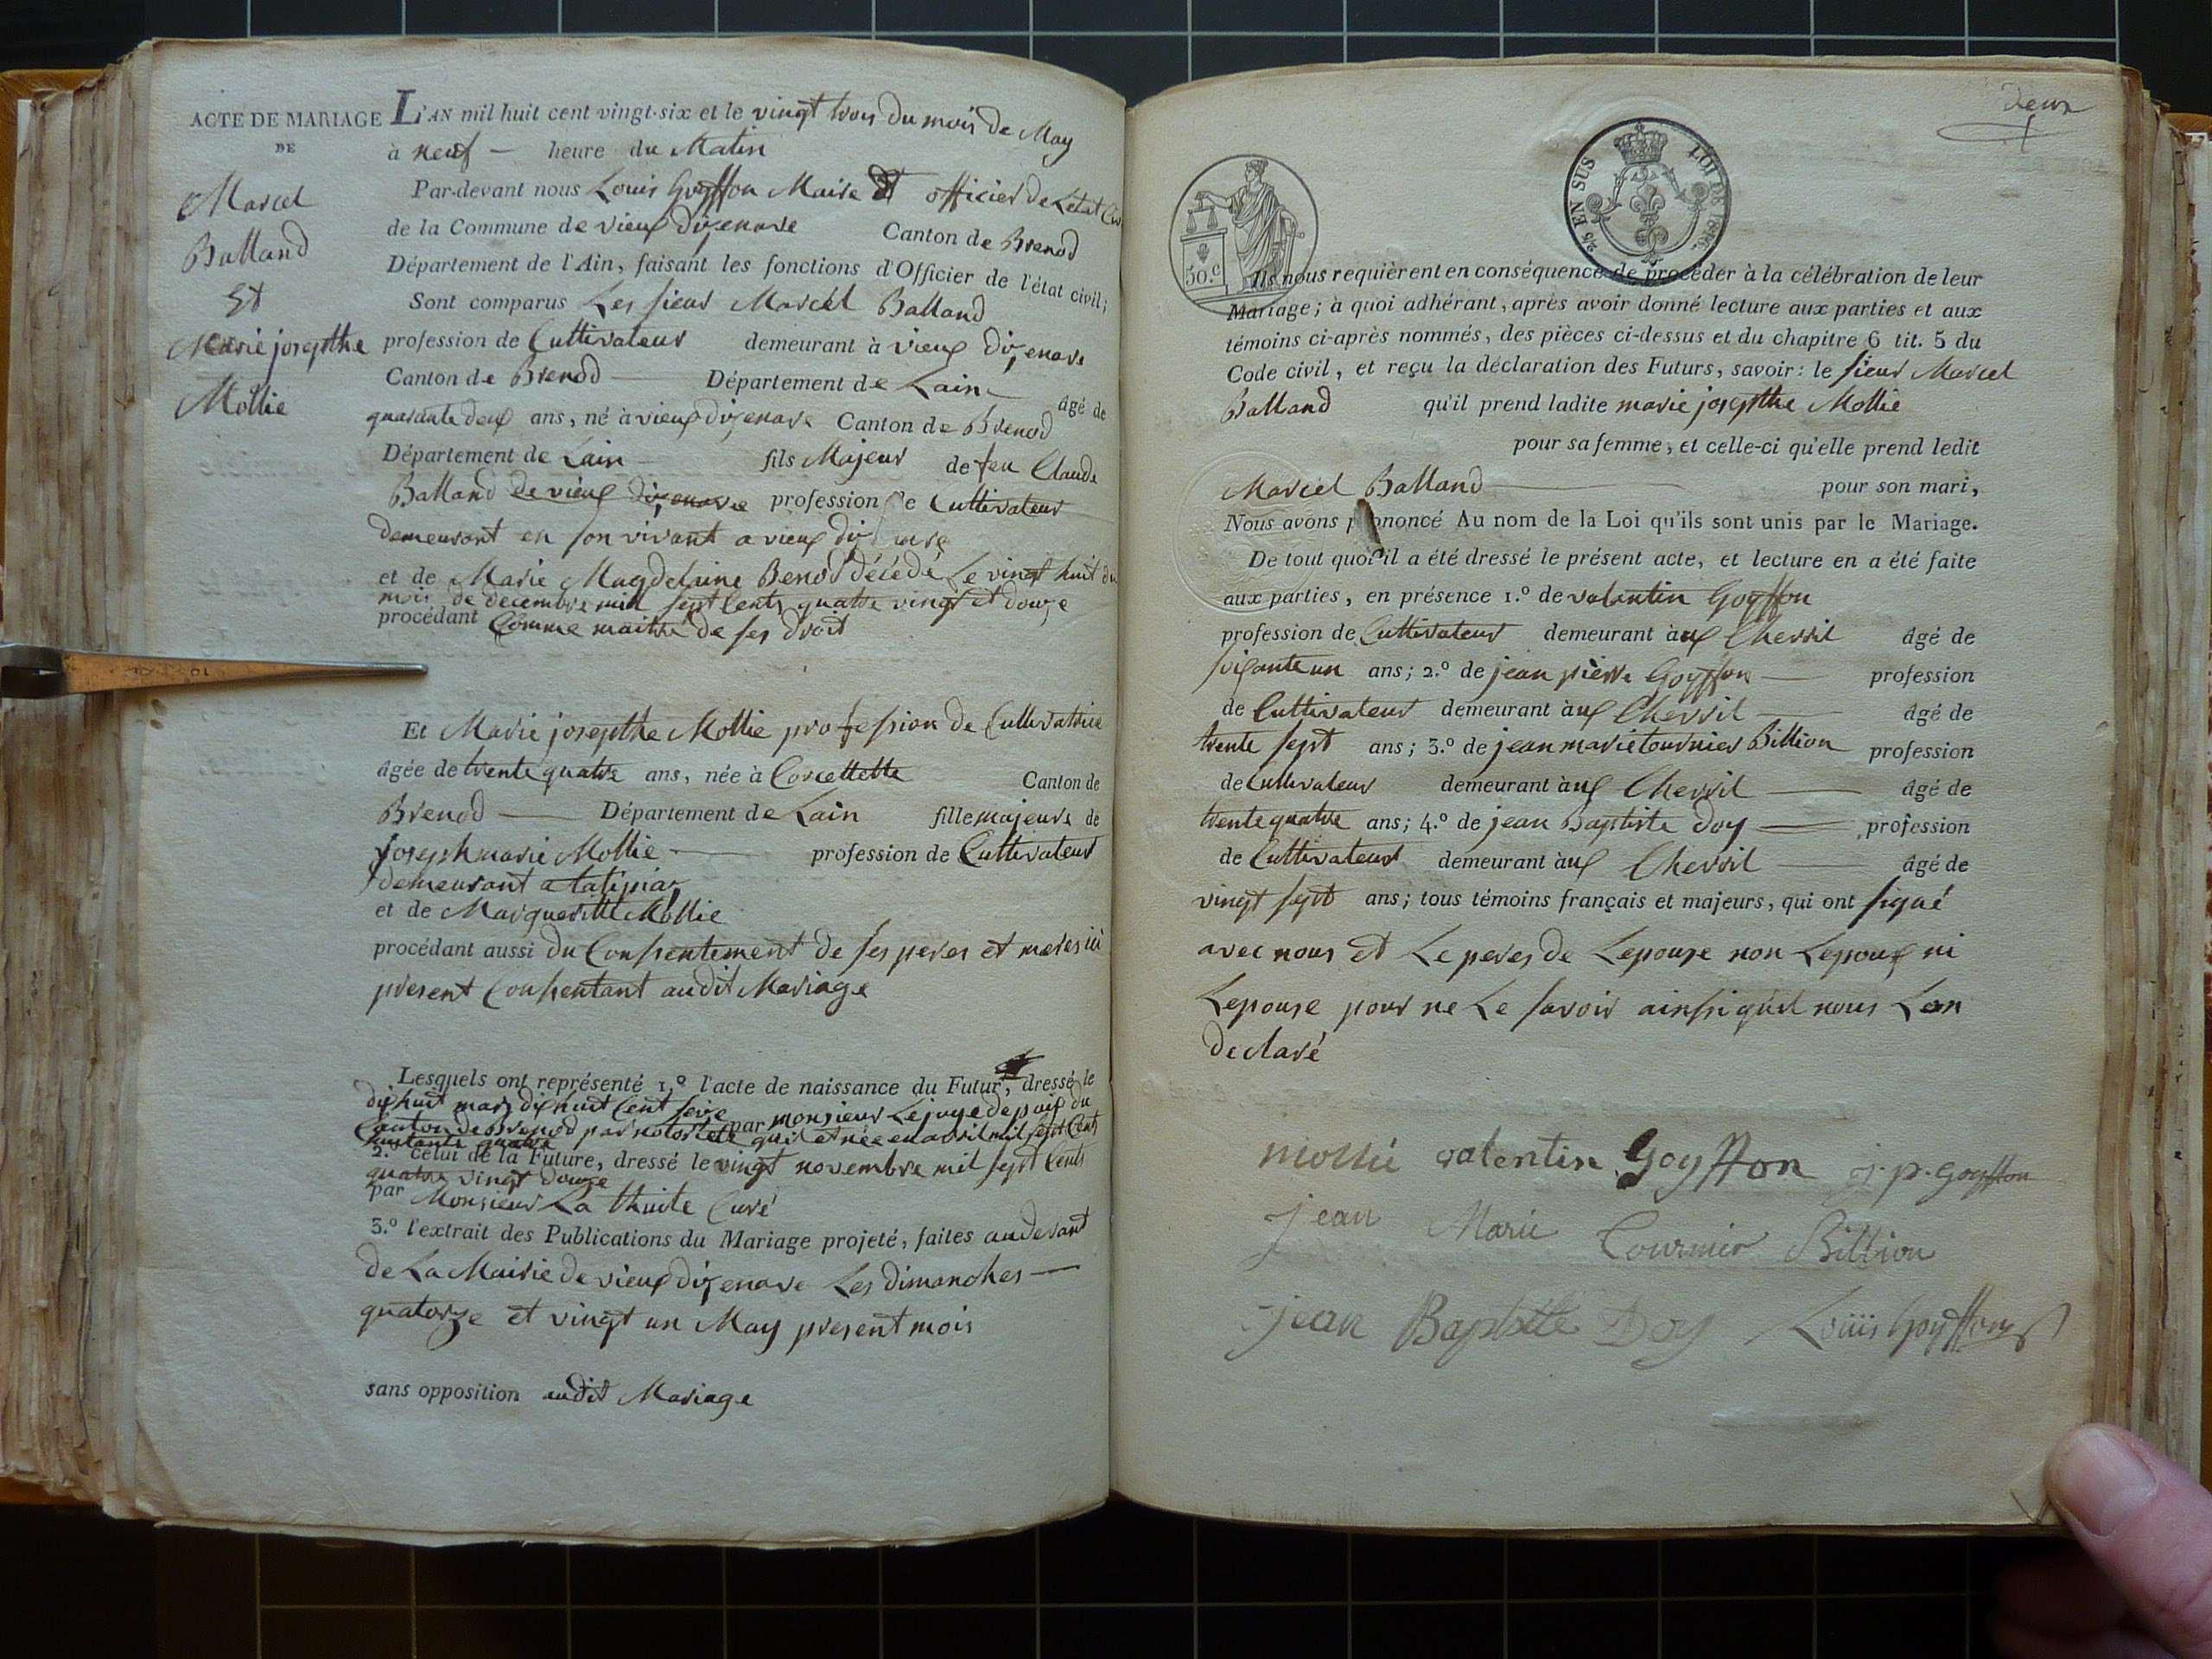 ACTE DE MARIAGE
DE
Marcel
Balland
Et
Marie josepthe
Mollie
L'AN mil huit cent vingt-six et le vingt trois du mois de May
à neuf — heure du Matin
Par-devant nous Louis Goyffon Maire et officier de Letat Civ
de la Commune de vieux dizenave Canton de Brenod
Département de l'Ain, faisant les fonctions d'Officier de l'état civil;
Sont comparus Les sieur Marcel Balland
profession de Cultivateur demeurant à vieux dizenave
Canton de Brenod — Département de Lain — âgé de
quarante deux ans, né à vieux dizenave Canton de Brenod
Département de Lain — fils Majeur de feu Claude
Balland de vieux dizenave profession de Cultivateur
demeurant en son vivant a vieux
et de Marie Magdelaine Benod décédé Le vingt huit du
mois de decembre mill sept Cents quatre vingt et douze
procédant Comme maitre de ses droit
Et Marie josepthe Mollie profession de Cultivatrice
âgée de trente quatre ans, née à Corcellette Canton de
Brenod — Département de Lain fille majeure de
Joseph marie Mollie — profession de Cultivateur
demeurant a
et de Margueritte Mollie
procédant aussi du Consentement de ses peres et meres ici
present Consentant audit Mariage
Lesquels ont représenté 1.º l'acte de naissance du Futur, dressé le
dix huit mars dix huit Cent seize par monsieur Le juge de paix du
Canton de Brenod par notoriété quil et née en avril mil sept Cents
huitante quatre
2.º celui de la Future, dressé le vingt novembre mil sept Cents
quatre vingt douze
par Monsieur La thuite Curé
3.º l'extrait des Publications du Mariage projeté, faites au devant
de La Mairie de vieux dizenave Les dimanches —
quatorze et vingt un May present mois
sans opposition audit Mariage
deux
2/5 EN SUS
LOI DE 1816.
50.c
Ils nous requièrent en conséquence de procéder à la célébration de leur
Mariage; à quoi adhérant, après avoir donné lecture aux parties et aux
témoins ci-après nommés, des pièces ci-dessus et du chapitre 6 tit. 5 du
Code civil, et reçu la déclaration des Futurs, savoir: le sieur Marcel
Balland qu'il prend ladite marie josepthe Mollie
pour sa femme, et celle-ci qu'elle prend ledit
Marcel Balland — pour son mari,
Nous avons prononcé Au nom de la Loi qu'ils sont unis par le Mariage.
De tout quoi il a été dressé le présent acte, et lecture en a été faite
aux parties, en présence 1.º de valentin Goyffon
profession de Cultivateur demeurant àux Chevril âgé de
soixante un ans; 2.º de jean pierre Goyffon — profession
de Cultivateur demeurant àux Chevril — âgé de
trente sept ans; 3.º de jean marie tournier Billion profession
de Cultivateur demeurant àux Chevril — âgé de
trente quatre ans; 4.º de jean Baptiste Doy — profession
de Cultivateur demeurant àux Chevril — âgé de
vingt sept ans; tous témoins français et majeurs, qui ont signé
avec nous et Le peres de Lepouse non Lepoux ni
Lepouse pour ne Le savoir ainsi quil nous Lon
declaré
mollié valentin Goyffon j. p. goyffon
jean Marie Tournier Billion
jean Baptiste Doy Louis Goyffon